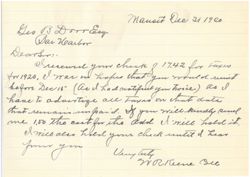 Manset Dec 21 1920
Geo B Dorr Esq
Bar Harbor
Dear Sir:
I received your check of 17.42 for taxes
for 1920, I was in hopes that you would remit
before Dec 15" (As I had notified you twice) as I
have to advertise all taxes on that date
that remain unpaid. If you will kindly send
me 1.50 the cost for the Add I will hold it.
I will also hold your check until I hear
from you
Very truly
W R Keene Col